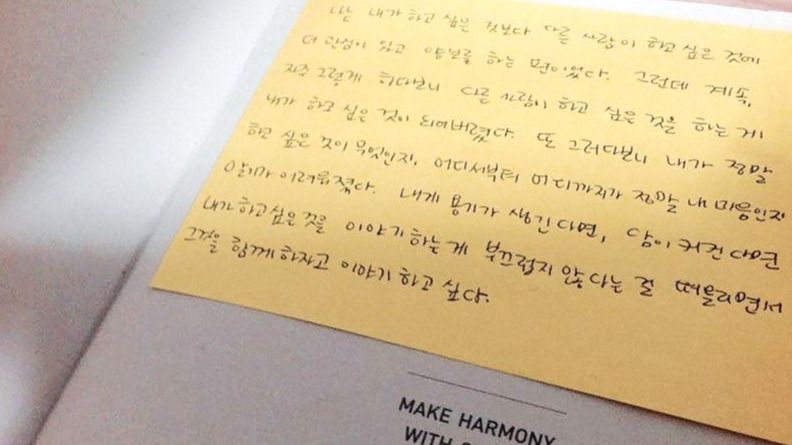 나는 내가 하고 싶은 것보다 다른 사람이 하고 싶은 것에
더 관심이 있고 양보를 하는 편이었다. 그런데 계속,
자주 그렇게 하다보니 다른 사람이 하고 싶은 것을 하는 게
내가 하고 싶은 것이 되어버렸다. 또 그러다보니 내가 정말
하고 싶은 것이 무엇인지, 어디서부터 어디까지가 정말 내 마음인지
알기가 어려워졌다. 내게 용기가 생긴다면, 담이 커진다면
내가 하고싶은 것을 이야기하는게 부끄럽지 않다는 걸 떠올리면서
그것을 함께 하자고 이야기하고 싶다.
MAKE HARMONY
WITH